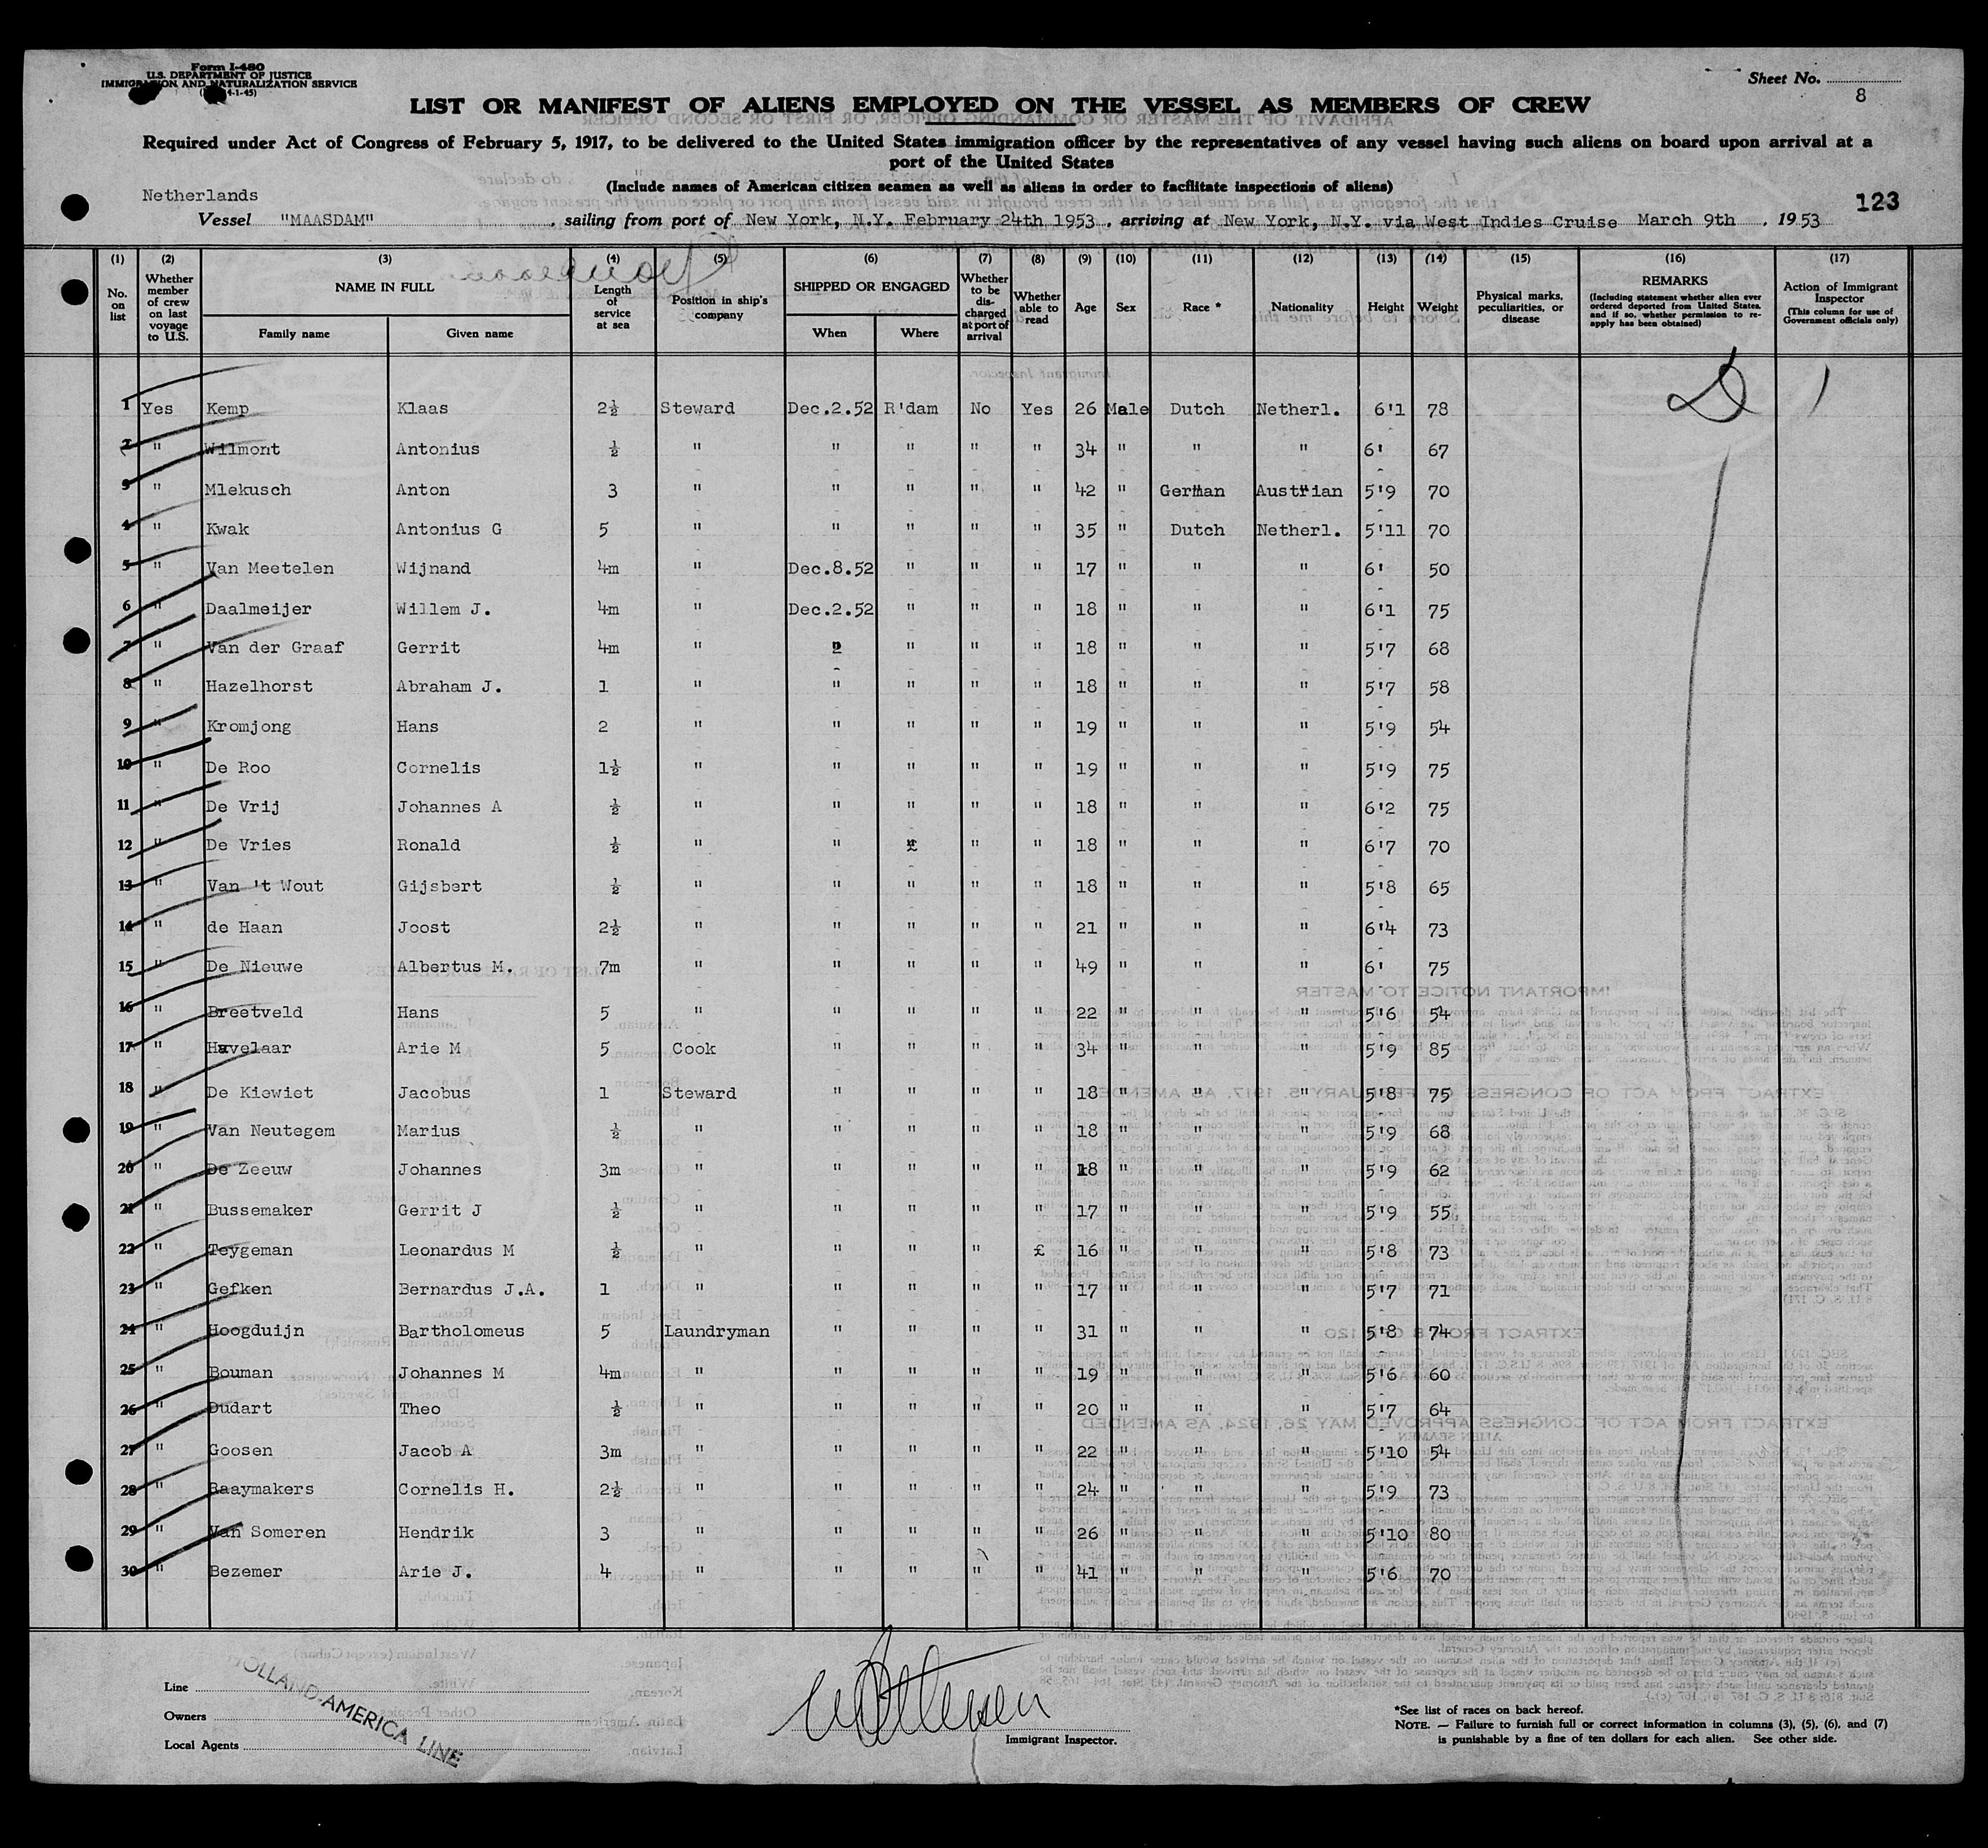 Form I-480
U.S. DEPARTMENT OF JUSTICE
IMMIGRATION AND NATURALIZATION SERVICE
4-1-45)
Sheet No.
8
LIST OR MANIFEST OF ALIENS EMPLOYED ON THE VESSEL AS MEMBERS OF CREW
Required under Act of Congress of February 5, 1917, to be delivered to the United States immigration officer by the representatives of any vessel having such aliens on board upon arrival at a
port of the United States
(Include names of American citizen seamen as well as aliens in order to facilitate inspections of aliens)
Netherlands
123
Vessel "MAASDAM", sailing from port of New York, N.Y. February 24th 1953, arriving at New York, N.Y. via West Indies Cruise March 9th, 1953
(1) (2) (3) (4) (5) (6) (7) (8) (9) (10) (11) (12) (13) (14) (15) (16) (17)
No. on list
Whether member of crew on last voyage to U.S.
NAME IN FULL
Family name
Given name
Length of service at sea
Position in ship's company
SHIPPED OR ENGAGED
When
Where
Whether to be discharged at port of arrival
Whether able to read
Age
Sex
Race *
Nationality
Height
Weight
Physical marks, peculiarities, or disease
REMARKS
(Including statement whether alien ever ordered deported from United States, and if so, whether permission to re-apply has been obtained)
Action of Immigrant Inspector
(This column for use of Government officials only)
1 Yes Kemp Klaas 2½ Steward Dec.2.52 R'dam No Yes 26 Male Dutch Netherl. 6'1 78
2 " Wilmont Antonius ½ " " " " " 34 " " " 6' 67
3 " Mlekusch Anton 3 " " " " " 42 " German Austrian 5'9 70
4 " Kwak Antonius G 5 " " " " " 35 " Dutch Netherl. 5'11 70
5 " Van Meetelen Wijnand 4m " Dec.8.52 " " " 17 " " " 6' 50
6 " Daalmeijer Willem J. 4m " Dec.2.52 " " " 18 " " " 6'1 75
7 " Van der Graaf Gerrit 4m " " " " " 18 " " " 5'7 68
8 " Hazelhorst Abraham J. 1 " " " " " 18 " " " 5'7 58
9 " Kromjong Hans 2 " " " " " 19 " " " 5'9 54
10 " De Roo Cornelis 1½ " " " " " 19 " " " 5'9 75
11 " De Vrij Johannes A ½ " " " " " 18 " " " 6'2 75
12 " De Vries Ronald ½ " " " " " 18 " " " 6'7 70
13 " Van 't Wout Gijsbert ½ " " " " " 18 " " " 5'8 65
14 " de Haan Joost 2½ " " " " " 21 " " " 6'4 73
15 " De Nieuwe Albertus M. 7m " " " " " 49 " " " 6' 75
16 " Breetveld Hans 5 " " " " " 22 " " " 5'6 54
17 " Havelaar Arie M 5 Cook " " " " 34 " " " 5'9 85
18 " De Kiewiet Jacobus 1 Steward " " " " 18 " " " 5'8 75
19 " Van Neutegem Marius ½ " " " " " 18 " " " 5'9 68
20 " De Zeeuw Johannes 3m " " " " " 18 " " " 5'9 62
21 " Bussemaker Gerrit J ½ " " " " " 17 " " " 5'9 55
22 " Teygeman Leonardus M ½ " " " " £ 16 " " " 5'8 73
23 " Gefken Bernardus J.A. 1 " " " " " 17 " " " 5'7 71
24 " Hoogduijn Bartholomeus 5 Laundryman " " " " 31 " " " 5'8 74
25 " Bouman Johannes M 4m " " " " " 19 " " " 5'6 60
26 " Dudart Theo ½ " " " " " 20 " " " 5'7 64
27 " Goosen Jacob A 3m " " " " " 22 " " " 5'10 54
28 " Raaymakers Cornelis H. 2½ " " " " " 24 " " " 5'9 73
29 " Van Someren Hendrik 3 " " " " " 26 " " " 5'10 80
30 " Bezemer Arie J. 4 " " " " " 41 " " " 5'6 70
Line
Owners
Local Agents
HOLLAND-AMERICA LINE
Immigrant Inspector.
*See list of races on back hereof.
NOTE. — Failure to furnish full or correct information in columns (3), (5), (6), and (7)
is punishable by a fine of ten dollars for each alien. See other side.